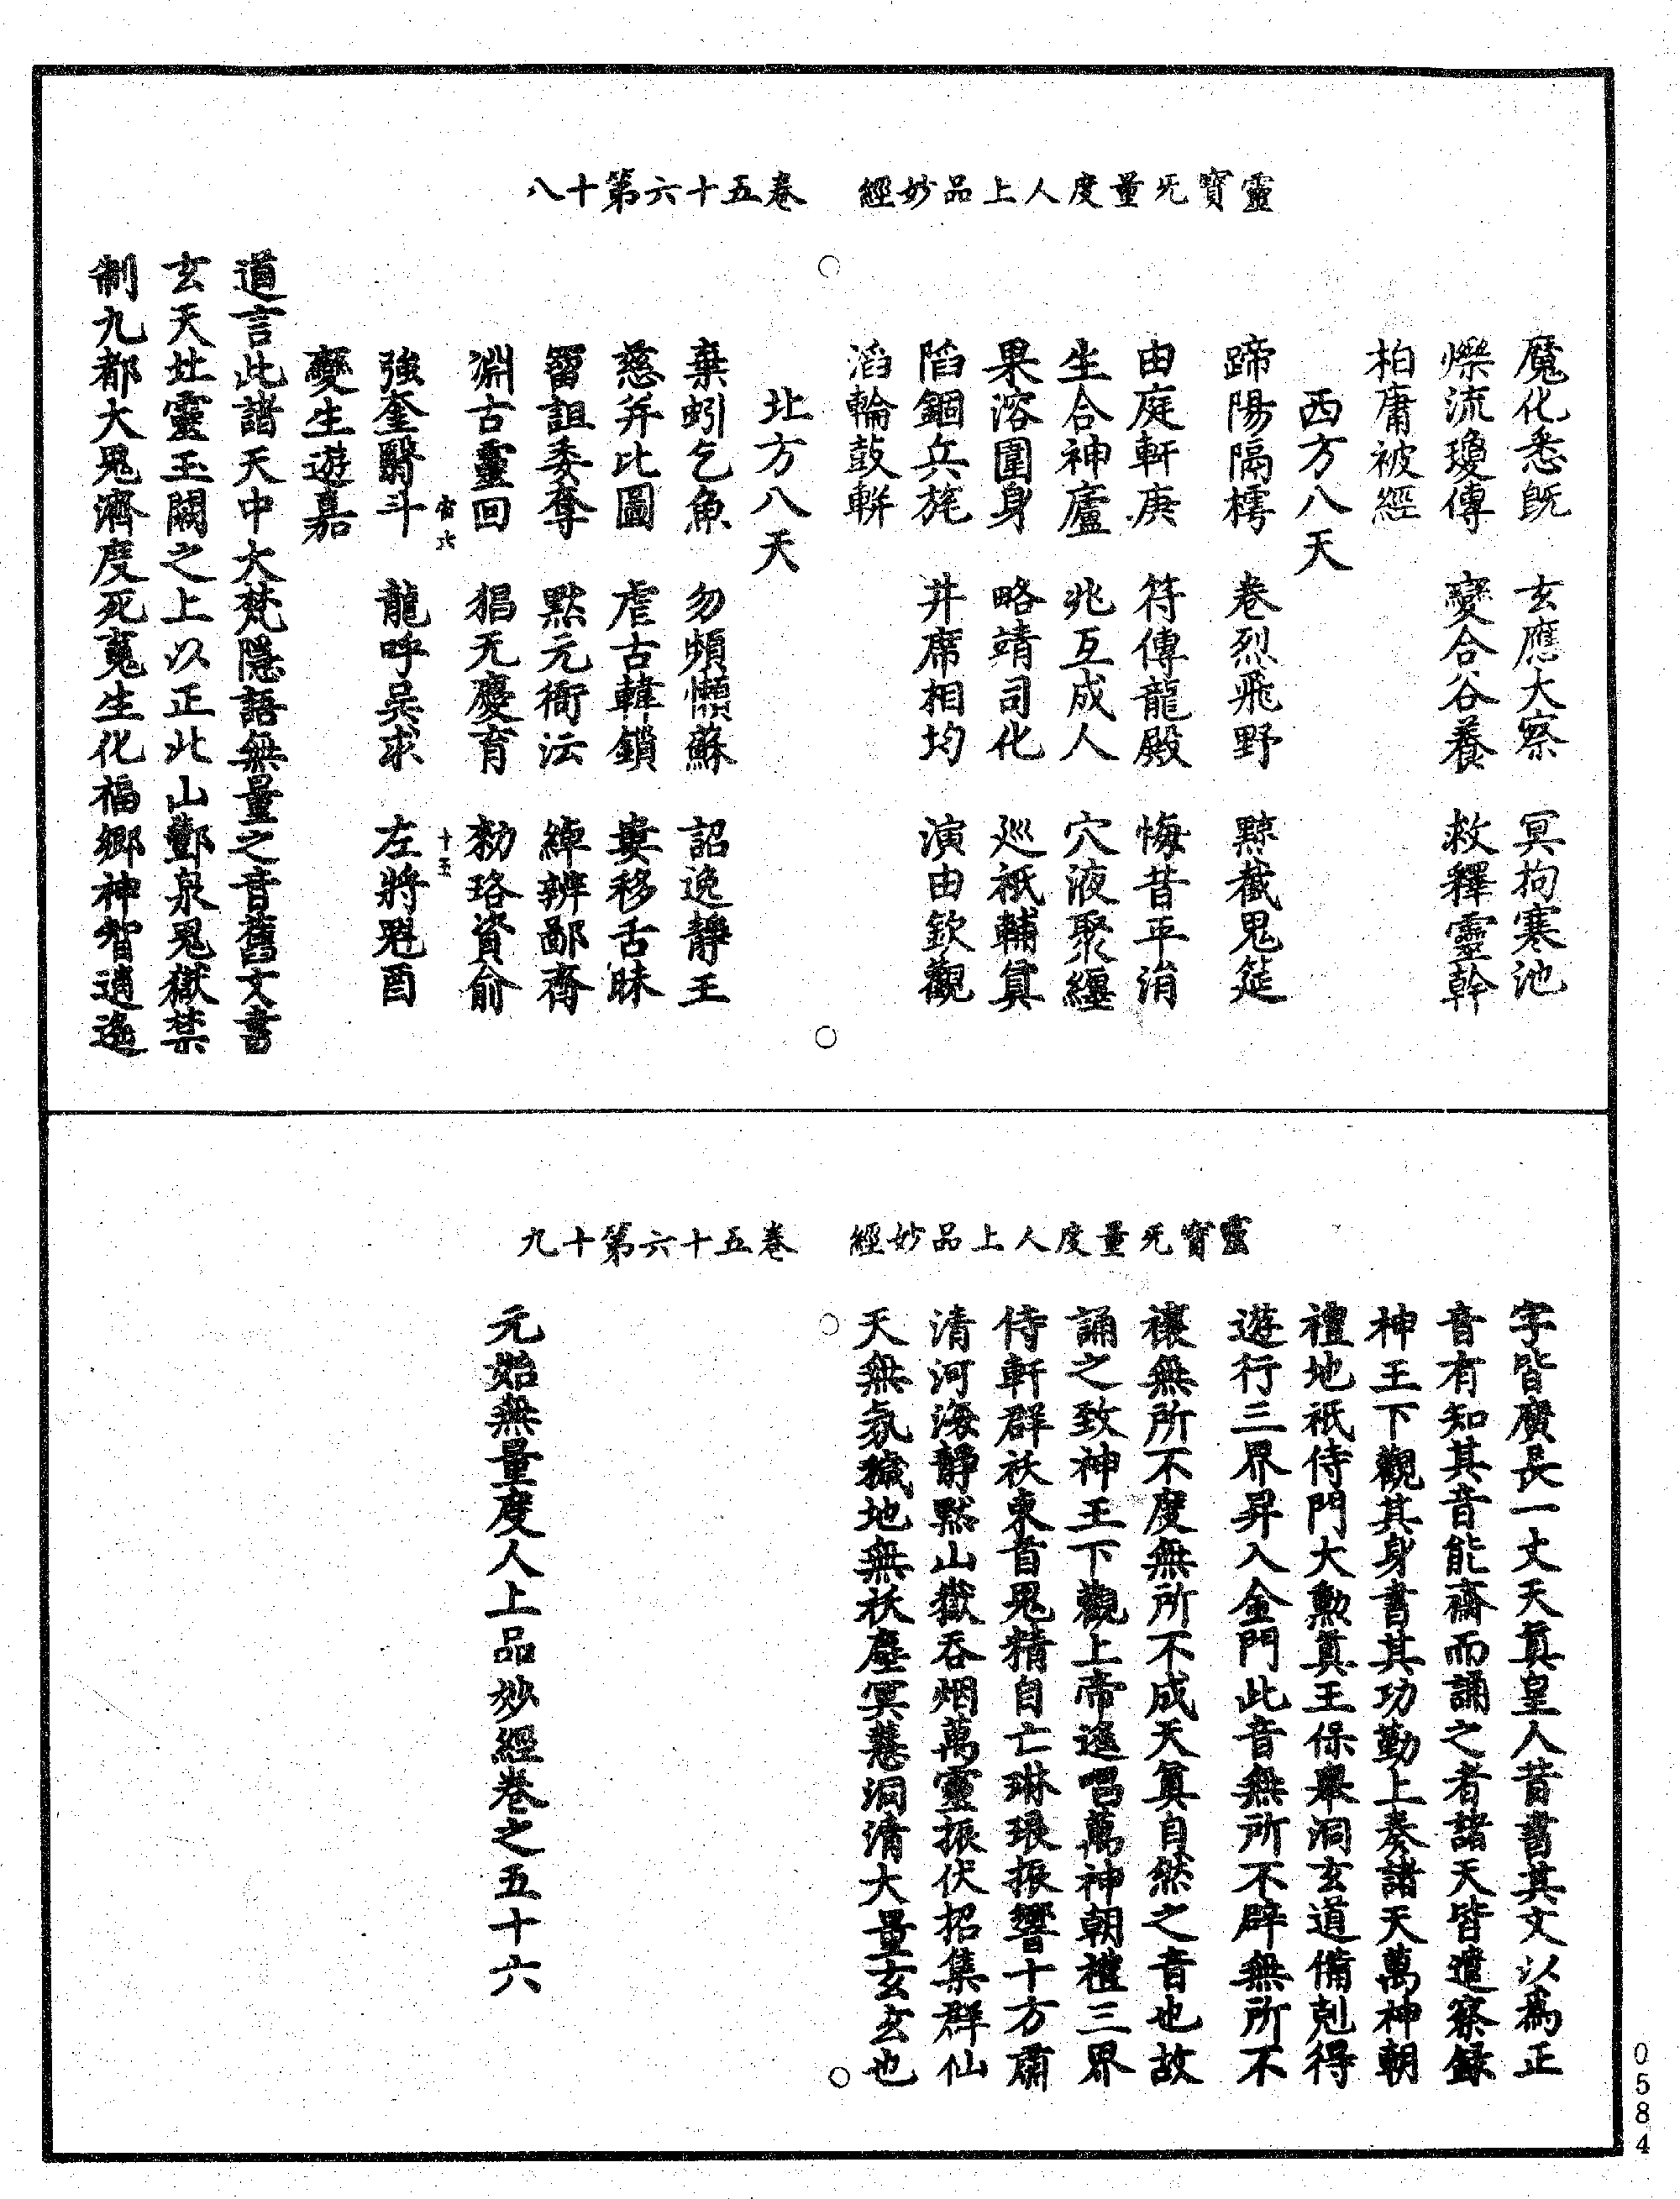 靈寶无量度人上品妙經　卷五十六第十八
魔化悉既　玄應大察　冥拘寒池
爍流瓊傳　變合谷養　救釋靈幹
柏庸被經
西方八天
蹄陽隔樗　卷烈飛野　黥截鬼筵
由庭軒庚　符傳龍殿　悔昔平涓
生合神廬　兆互成人　穴液聚纏
果溶圍身　略靖司化　巡祇輔真
陷錮兵旄　井席相均　演由欽觀
滔輪鼓軿
北方八天
棄蚓乞魚　勿頻懶蘇　詔逸靜王
慈并比圖　虐古韓鎖　婁移舌昧
留詛委奪　點元衝沄　綽辨鄙齊
淵古靈回　猖无慶育　勑珞資俞
宿六　十五
強奎翳斗　龍呼吳求　左將魁酉
變生遊嘉
道言此諸天中大梵隱語無量之音舊文書
玄天北靈玉闕之上以正北山酆泉鬼獄禁
制九都大鬼濟度死䰟生化福鄉神智逍遙
靈寶无量度人上品妙經　卷五十六第十九
字皆廣長一丈天真皇人昔書其文以為正
音有知其音能齋而誦之者諸天皆遣察錄
神王下觀其身書其功勤上奏諸天萬神朝
禮地祇侍門大勲真王保舉洞玄道備剋得
遊行三界昇入金門此音無所不辟無所不
禳無所不度無所不成天真自然之音也故
誦之致神王下觀上帝遥唱萬神朝禮三界
侍軒群祅束首鬼精自亡琳琅振響十方肅
清河海靜默山嶽吞烟萬靈振伏招集群仙
天無氛穢地無袄塵冥慧洞清大量玄玄也
元始無量度人上品妙經卷之五十六
0584